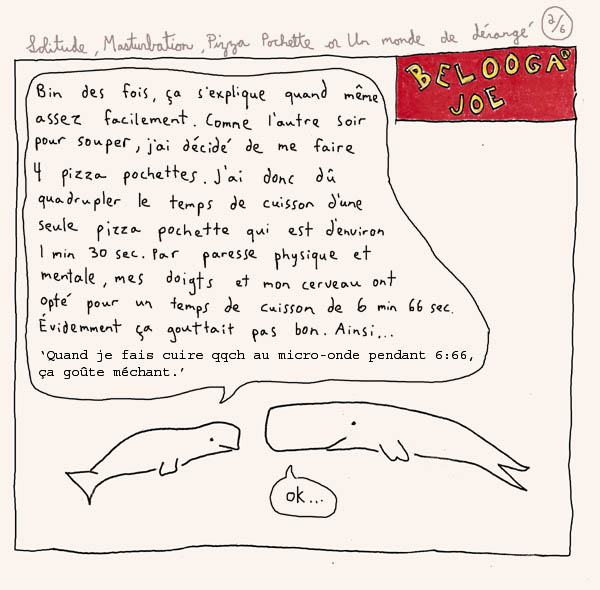 Solitude, Masturbation, Pizza Pochette or Un monde de dérangé
2/6
BELOOGA®
JOE
Bin des fois, ça s'explique quand même
assez facilement. Comme l'autre soir
pour souper, j'ai décidé de me faire
4 pizza pochettes. J'ai donc dû
quadrupler le temps de cuisson d'une
seule pizza pochette qui est d'environ
1 min 30 sec. Par paresse physique et
mentale, mes doigts et mon cerveau ont
opté pour un temps de cuisson de 6 min 66 sec.
Évidemment ça gouttait pas bon. Ainsi...
‘Quand je fais cuire qqch au micro-onde pendant 6:66,
ça goûte méchant.’
ok...